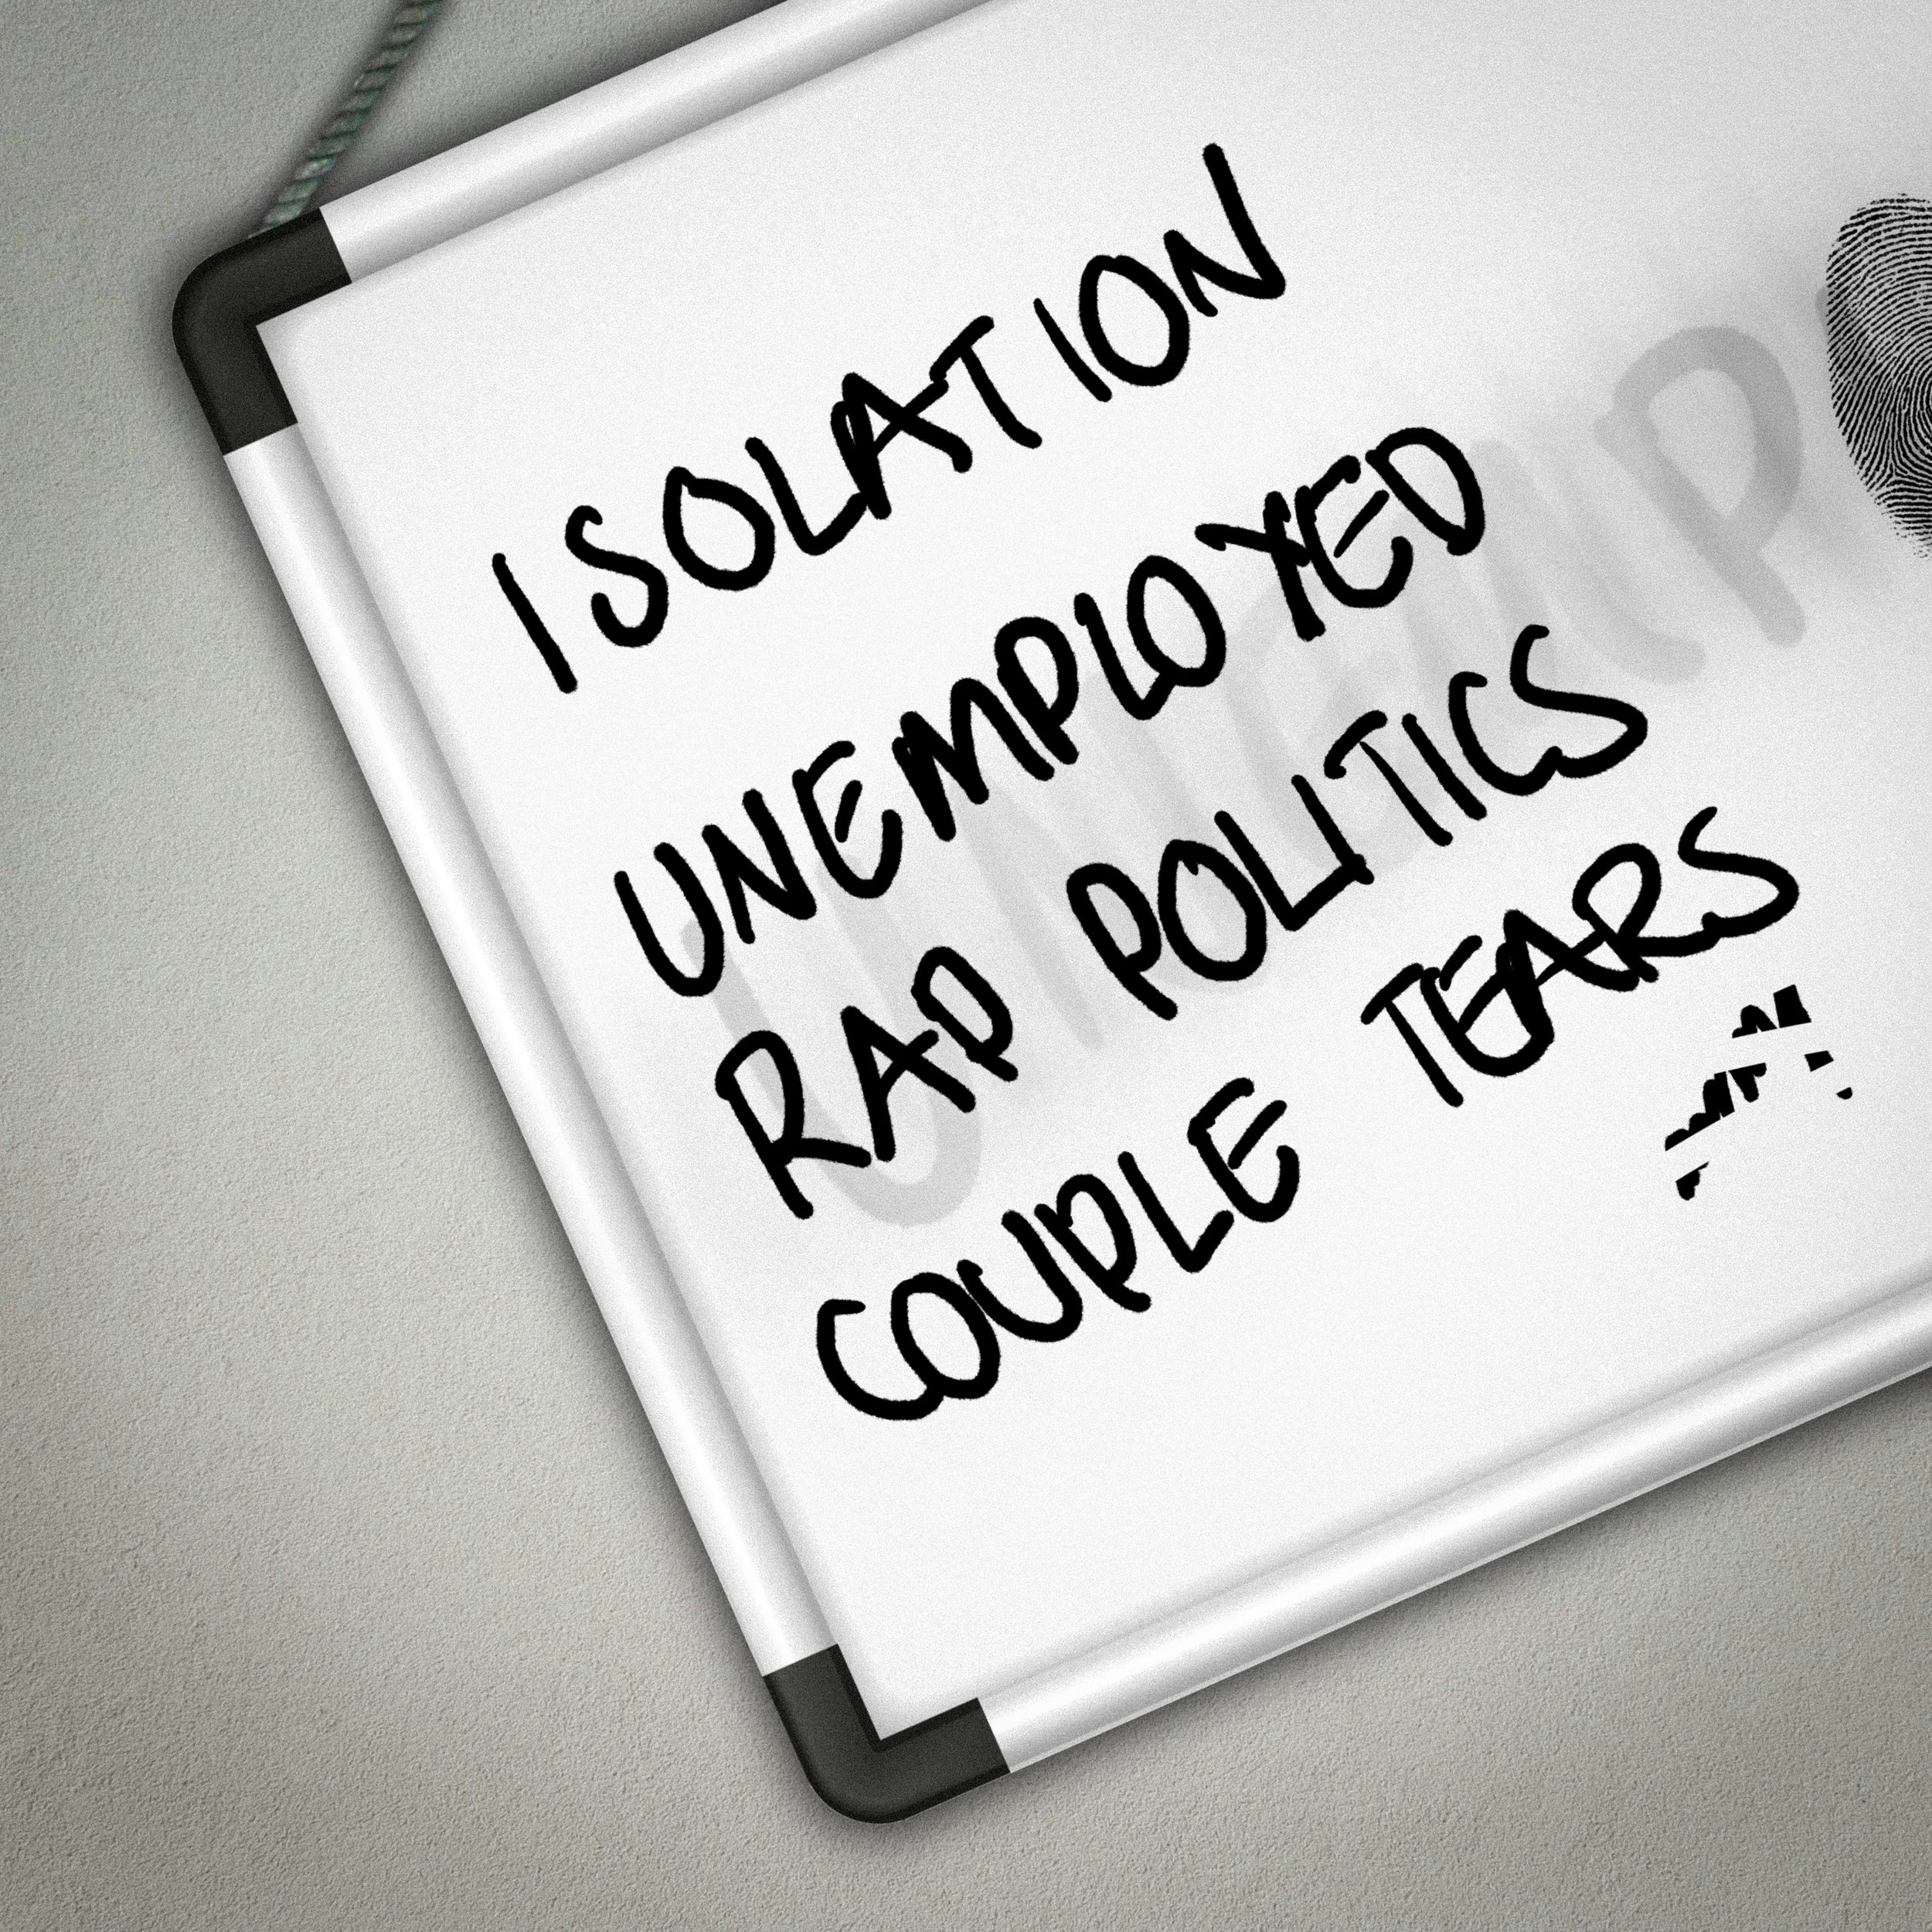 ISOLATION
UNEMPLOYED
RAP POLITICS
COUPLE TEARS